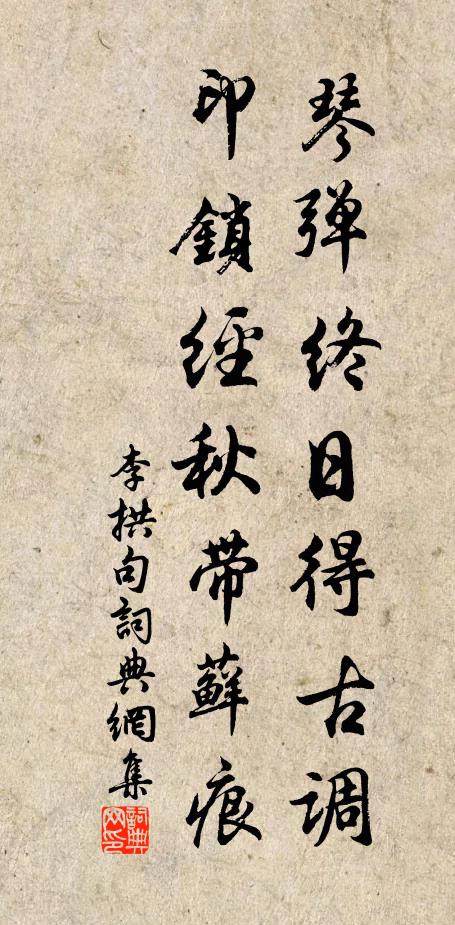 琴弹终日得古调
印鎖經秋帶蘚痕
李拱句詞典網集
詞典网印